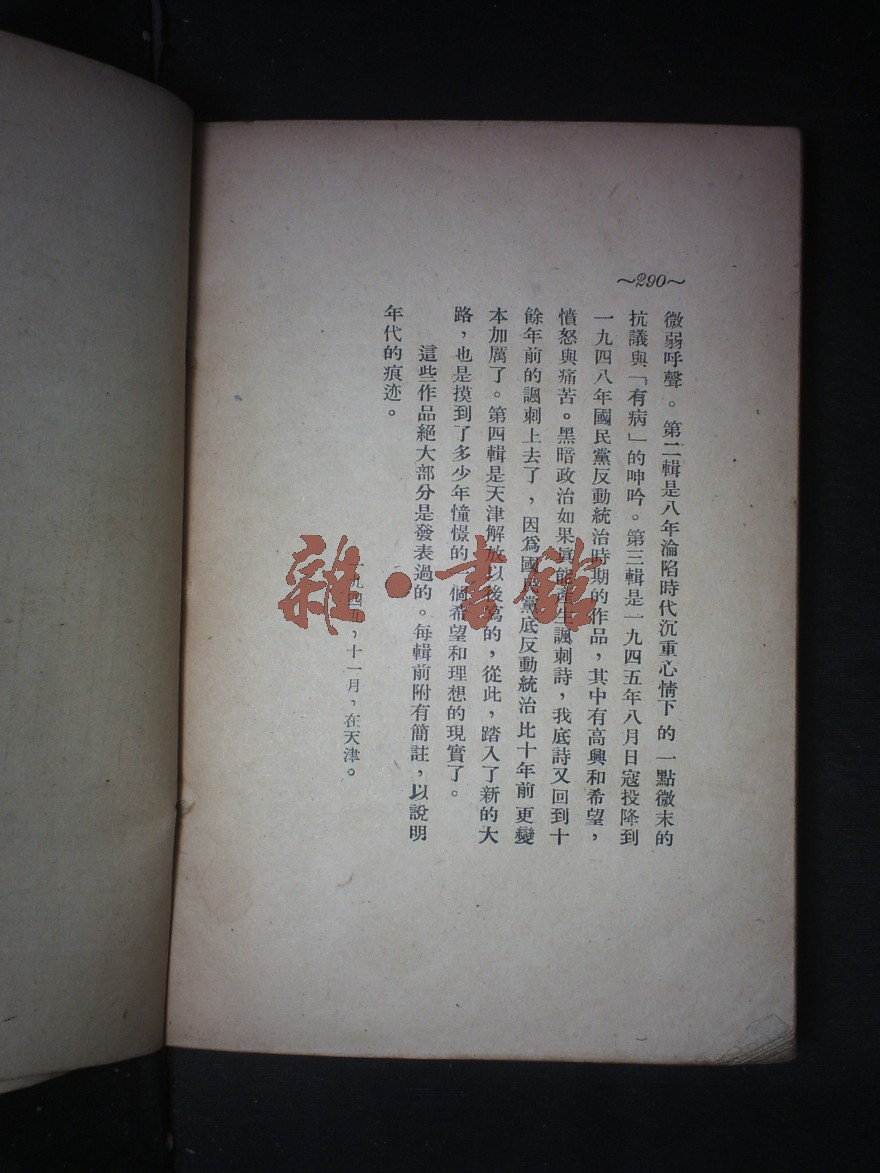 ～290～
微弱呼聲。第二輯是八年淪陷時代沉重心情下的一點微末的
抗議與「有病」的呻吟。第三輯是一九四五年八月日寇投降到
一九四八年國民黨反動統治時期的作品，其中有高興和希望，
憤怒與痛苦。黑暗政治如果眞能產生諷刺詩，我底詩又回到十
餘年前的諷刺上去了，因爲國民黨底反動統治比十年前更變
本加厲了。第四輯是天津解放以後寫的，從此，踏入了新的大
路，也是摸到了多少年憧憬的一個希望和理想的現實了。
這些作品絕大部分是發表過的。每輯前附有簡註，以說明
年代的痕迹。
一九四九，十一月，在天津。
雜·書館